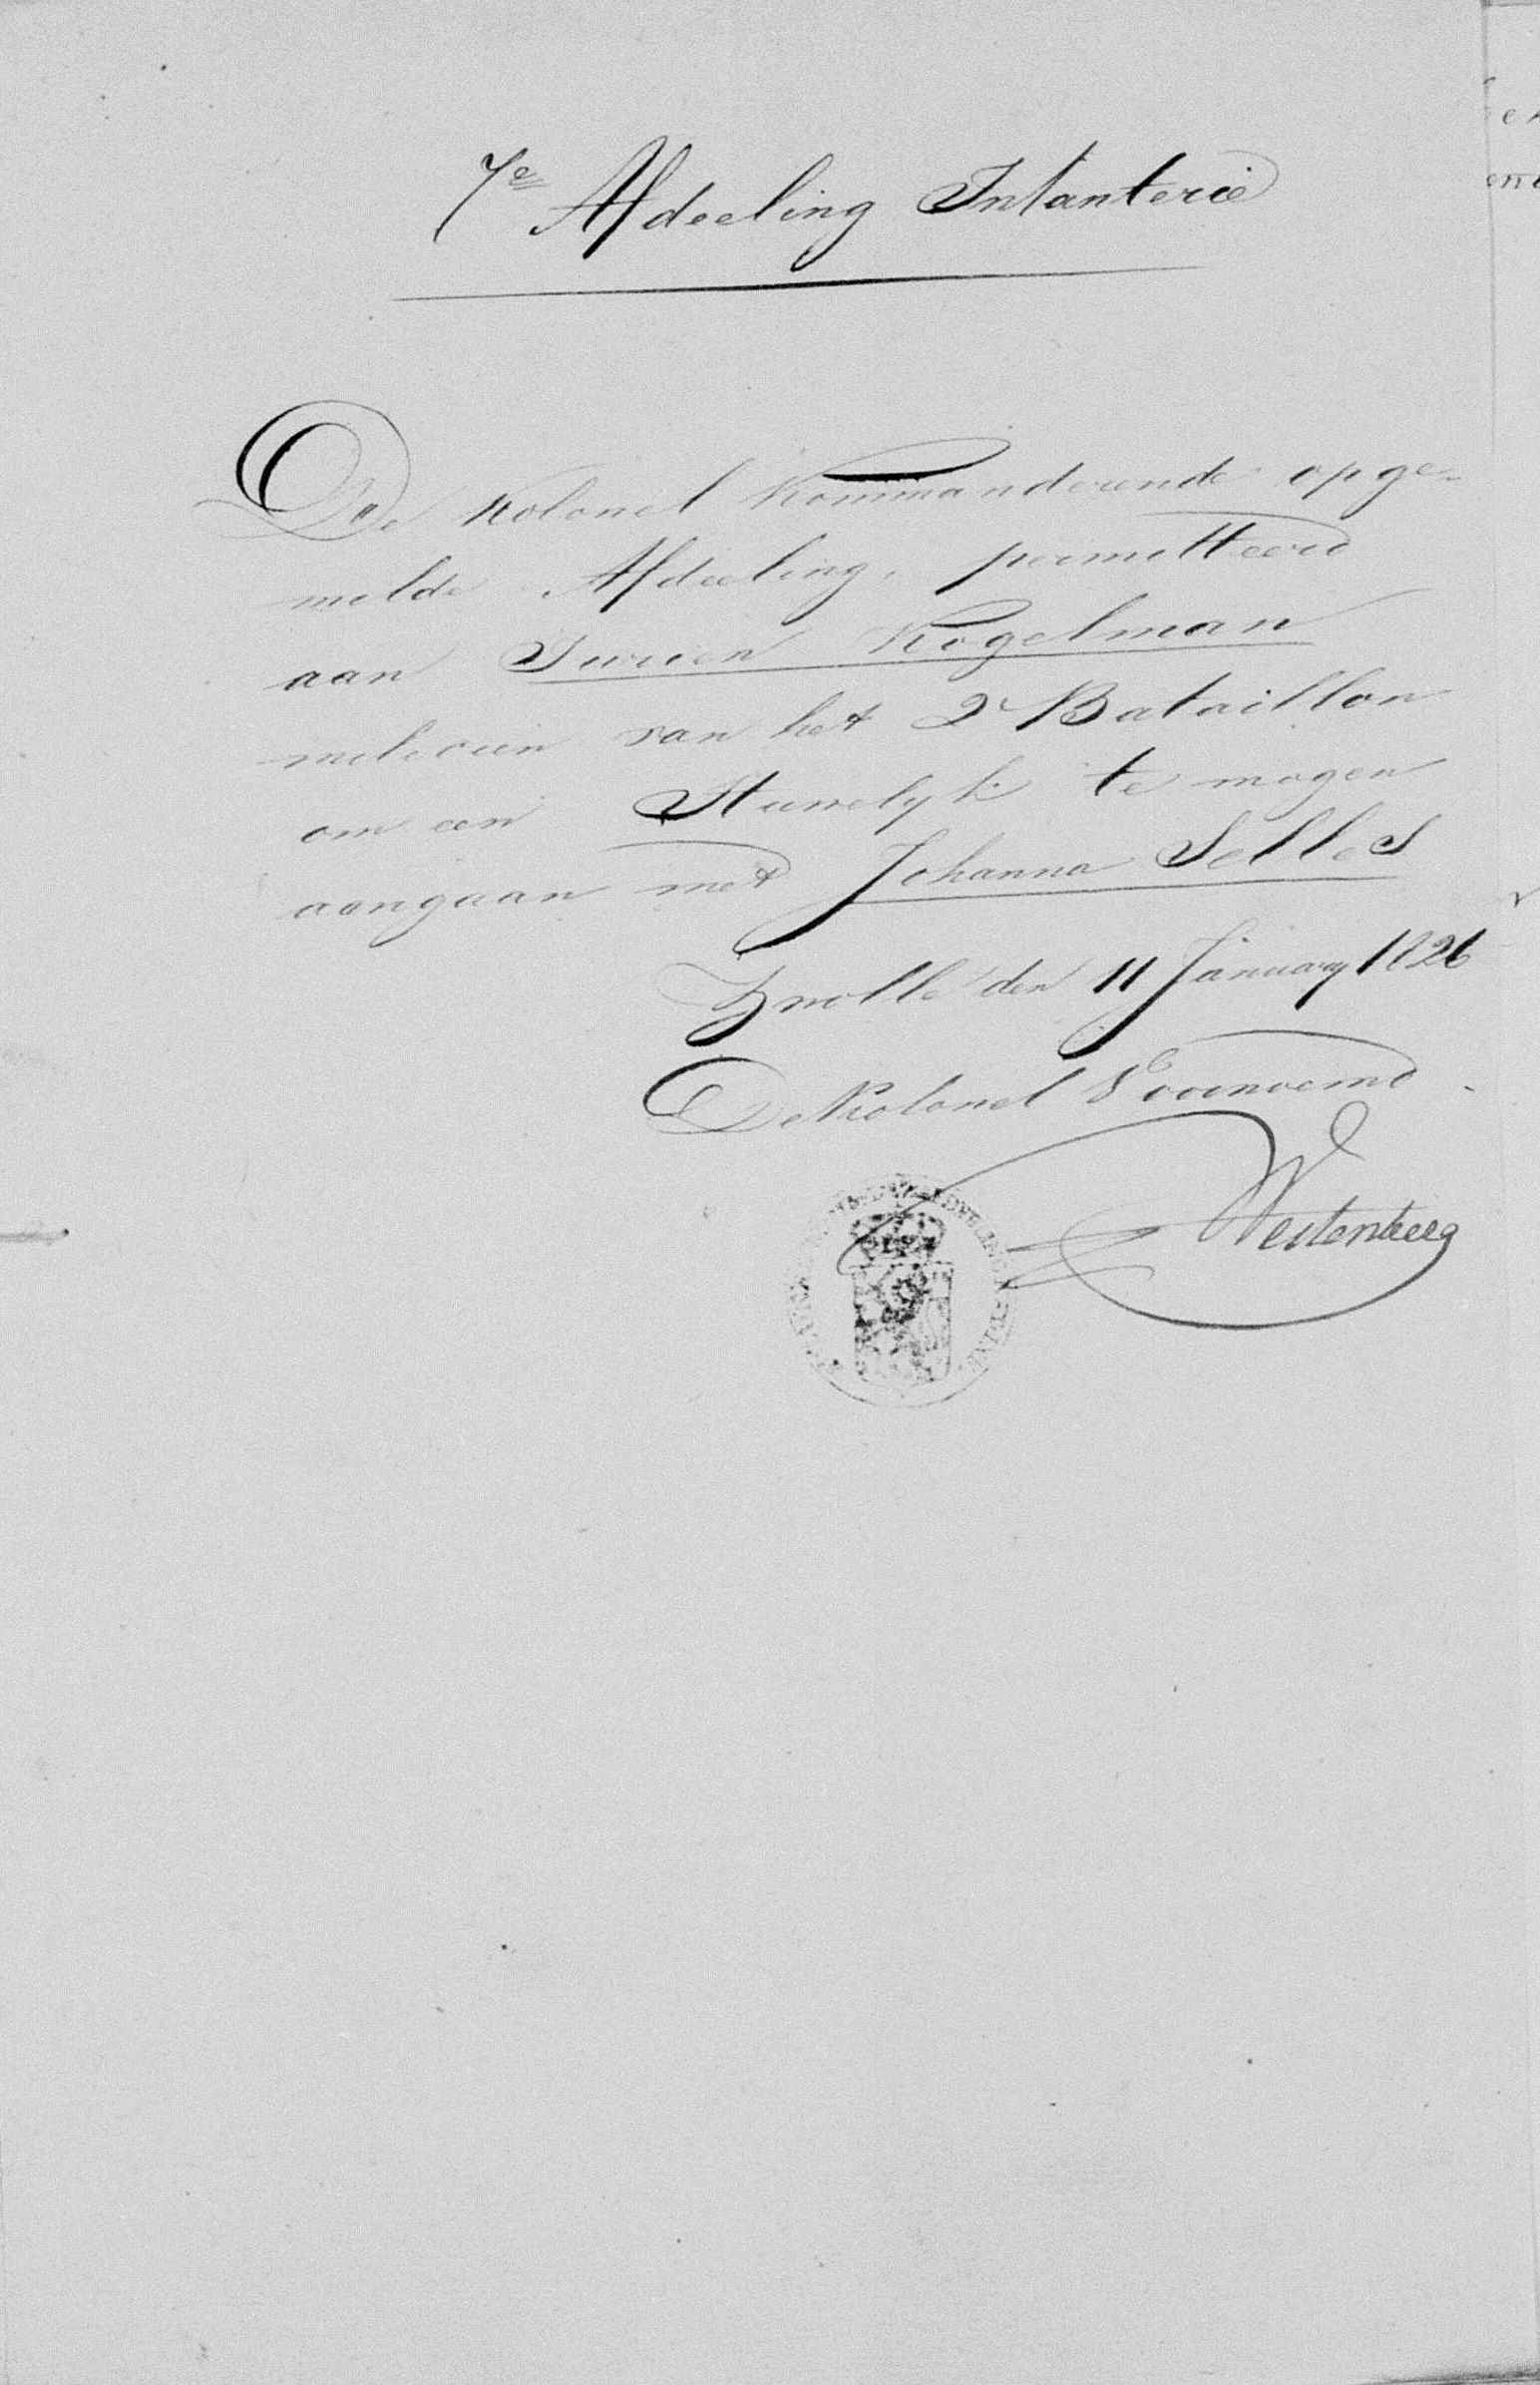 7e Afdeeling Infanterie
De Kolonel Kommanderende opge-
melde Afdeeling, permitteerd
aan Jurien Kogelman
milicien van het 2e Bataillon
om een Huwelyk te mogen
aangaan met Johanna Selles
Zwolle den 11 January 1826
De Kolonel Voornoemd
Westenberg